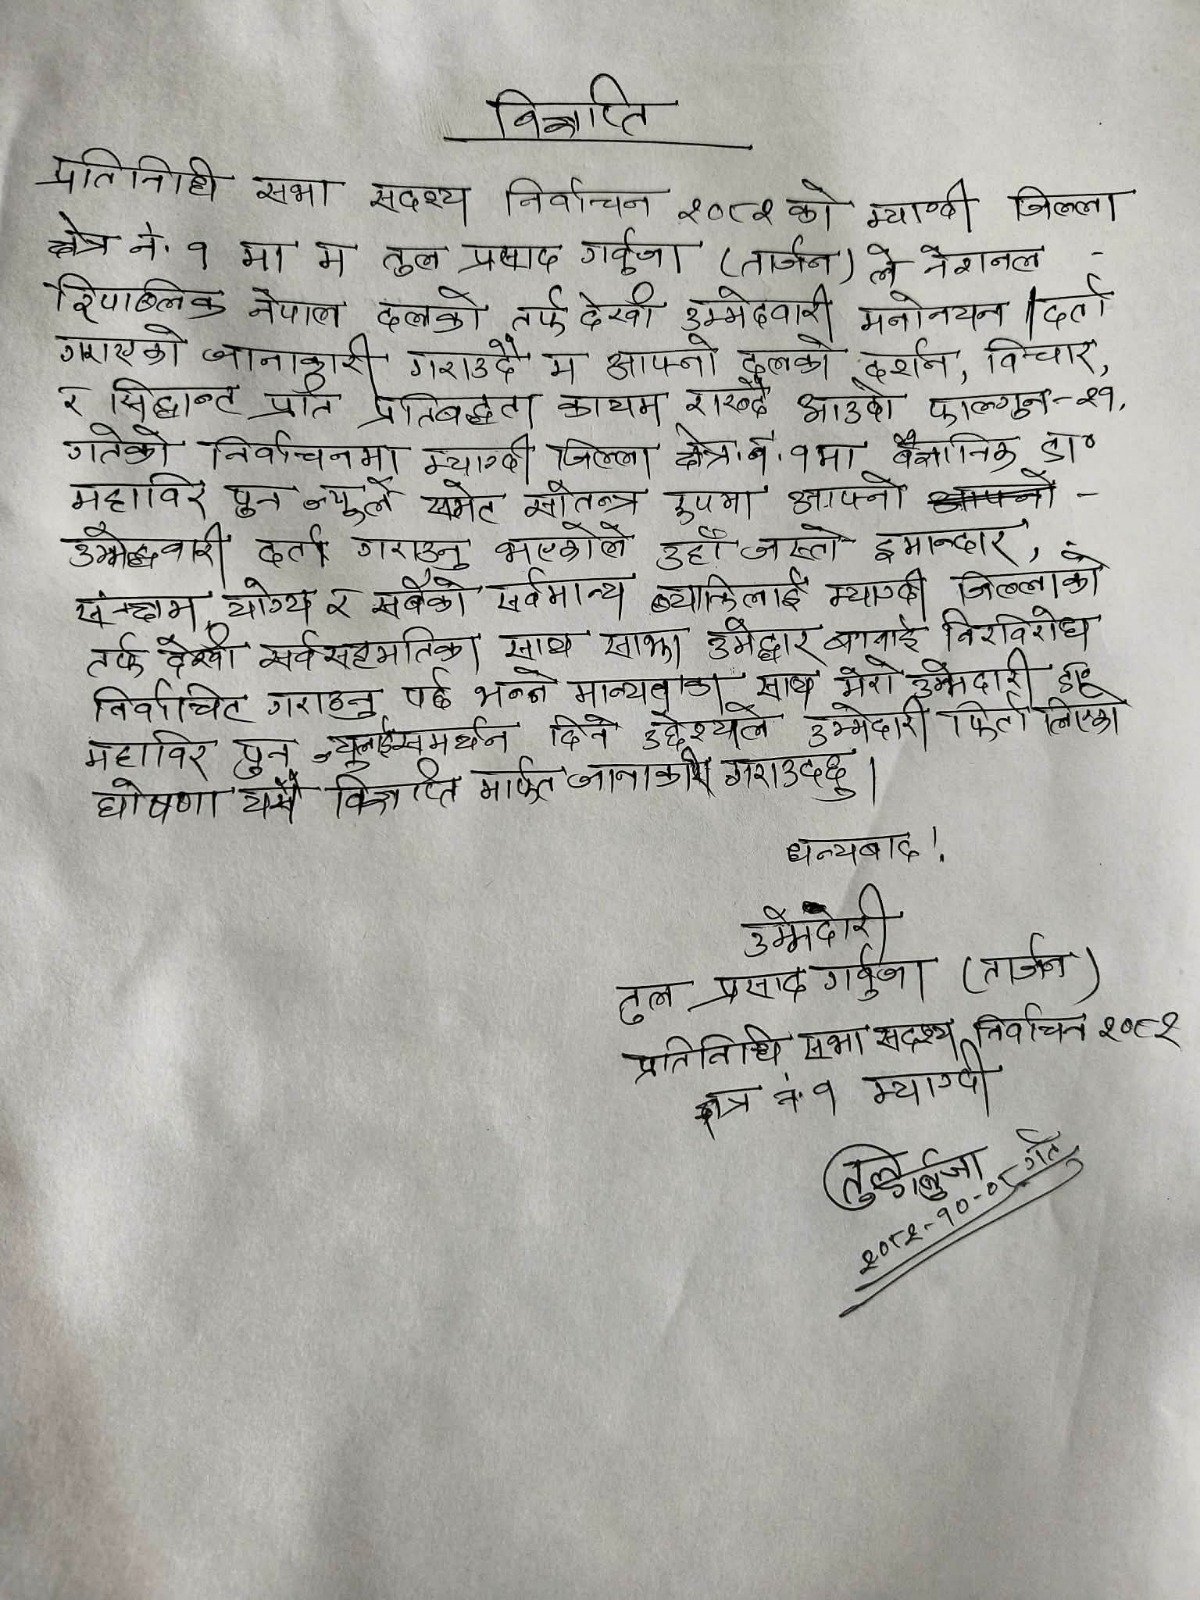 विज्ञप्ति
प्रतिनिधी सभा सदश्य निर्वाचन २०८२ को म्याग्दी जिल्ला
क्षेत्र नं. १ मा म तुल प्रसाद गर्वुजा (तार्जन) ले नेशनल -
रिपाब्लिक नेपाल दलको तर्फ देखी उम्मेदवारी मनोनयन / दर्ता
गराएको जानाकारी गराउदै म आफ्नो दलको दर्शन, विचार,
र सिद्धान्ट प्रति प्रतिबद्धता कायम राख्दै आउदो फाल्गुन-२१,
गतेको निर्वाचनमा म्याग्दी जिल्ला क्षेत्र.नं. १मा बैज्ञानिक डा०
महाविर पुन ज्यूले समेट सोतन्त्र रुपमा आफ्नो आफ्नो -
उम्मेद्धवारी दर्ता गराउनु भएकोले उहाँ जस्तो इमान्दार,
सक्षम, योग्य र सबैको सर्वमान्य ब्याक्तिलाई म्याग्दी जिल्लाको
तर्फ देखी सर्वसहमतिका साथ साझा उमेद्धार बनाई निरविरोध
निर्वाचित गराउनु पर्छ भन्ने मान्यताका साथ मेरो उम्मेदारी डा०
महाविर पुन ज्युलाई समर्थन दिने उद्देश्यले उम्मेदारी फिर्ता लिएको
घोषणा यसै विज्ञप्ति मार्फत जानाकारी गराउदछु।
धन्यबाद !
उम्मेदारी
तुल प्रसाद गर्वुजा (तार्जन)
प्रतिनिधि सभा सदश्य निर्वाचन २०८२
क्षेत्र नं. १ म्याग्दी
तुल गर्बुजा
२०८२-१०-०८ गते